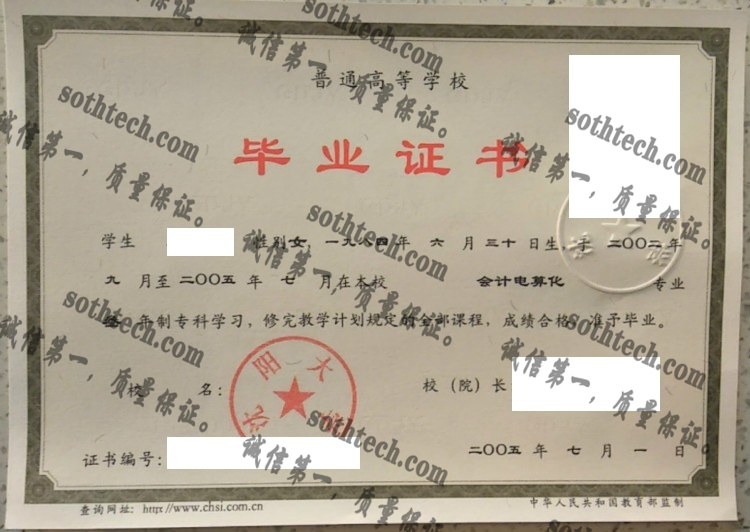 普通高等学校
毕业证书
学生 性别女，一九八四年 六 月三十日生，于 二〇〇二年
九 月至二〇〇五 年 七 月在本校 会计电算化 专业
年制专科学习，修完教学计划规定的全部课程，成绩合格，准予毕业。
校 名： 校（院）长：
沈阳大
证书编号： 二〇〇五 年 七 月 一 日
查询网址：http://www.chsi.com.cn 中华人民共和国教育部监制
sothtech.com
诚信第一，质量保证。
sothtech.com
诚信第一，质量保证。
sothtech.com
诚信第一，质量保证。
sothtech.com
诚信第一，质量保证。
sothtech.com
诚信第一，质量保证。
sothtech.com
诚信第一，质量保证。
sothtech.com
诚信第一，质量保证。
sothtech.com
诚信第一，质量保证。